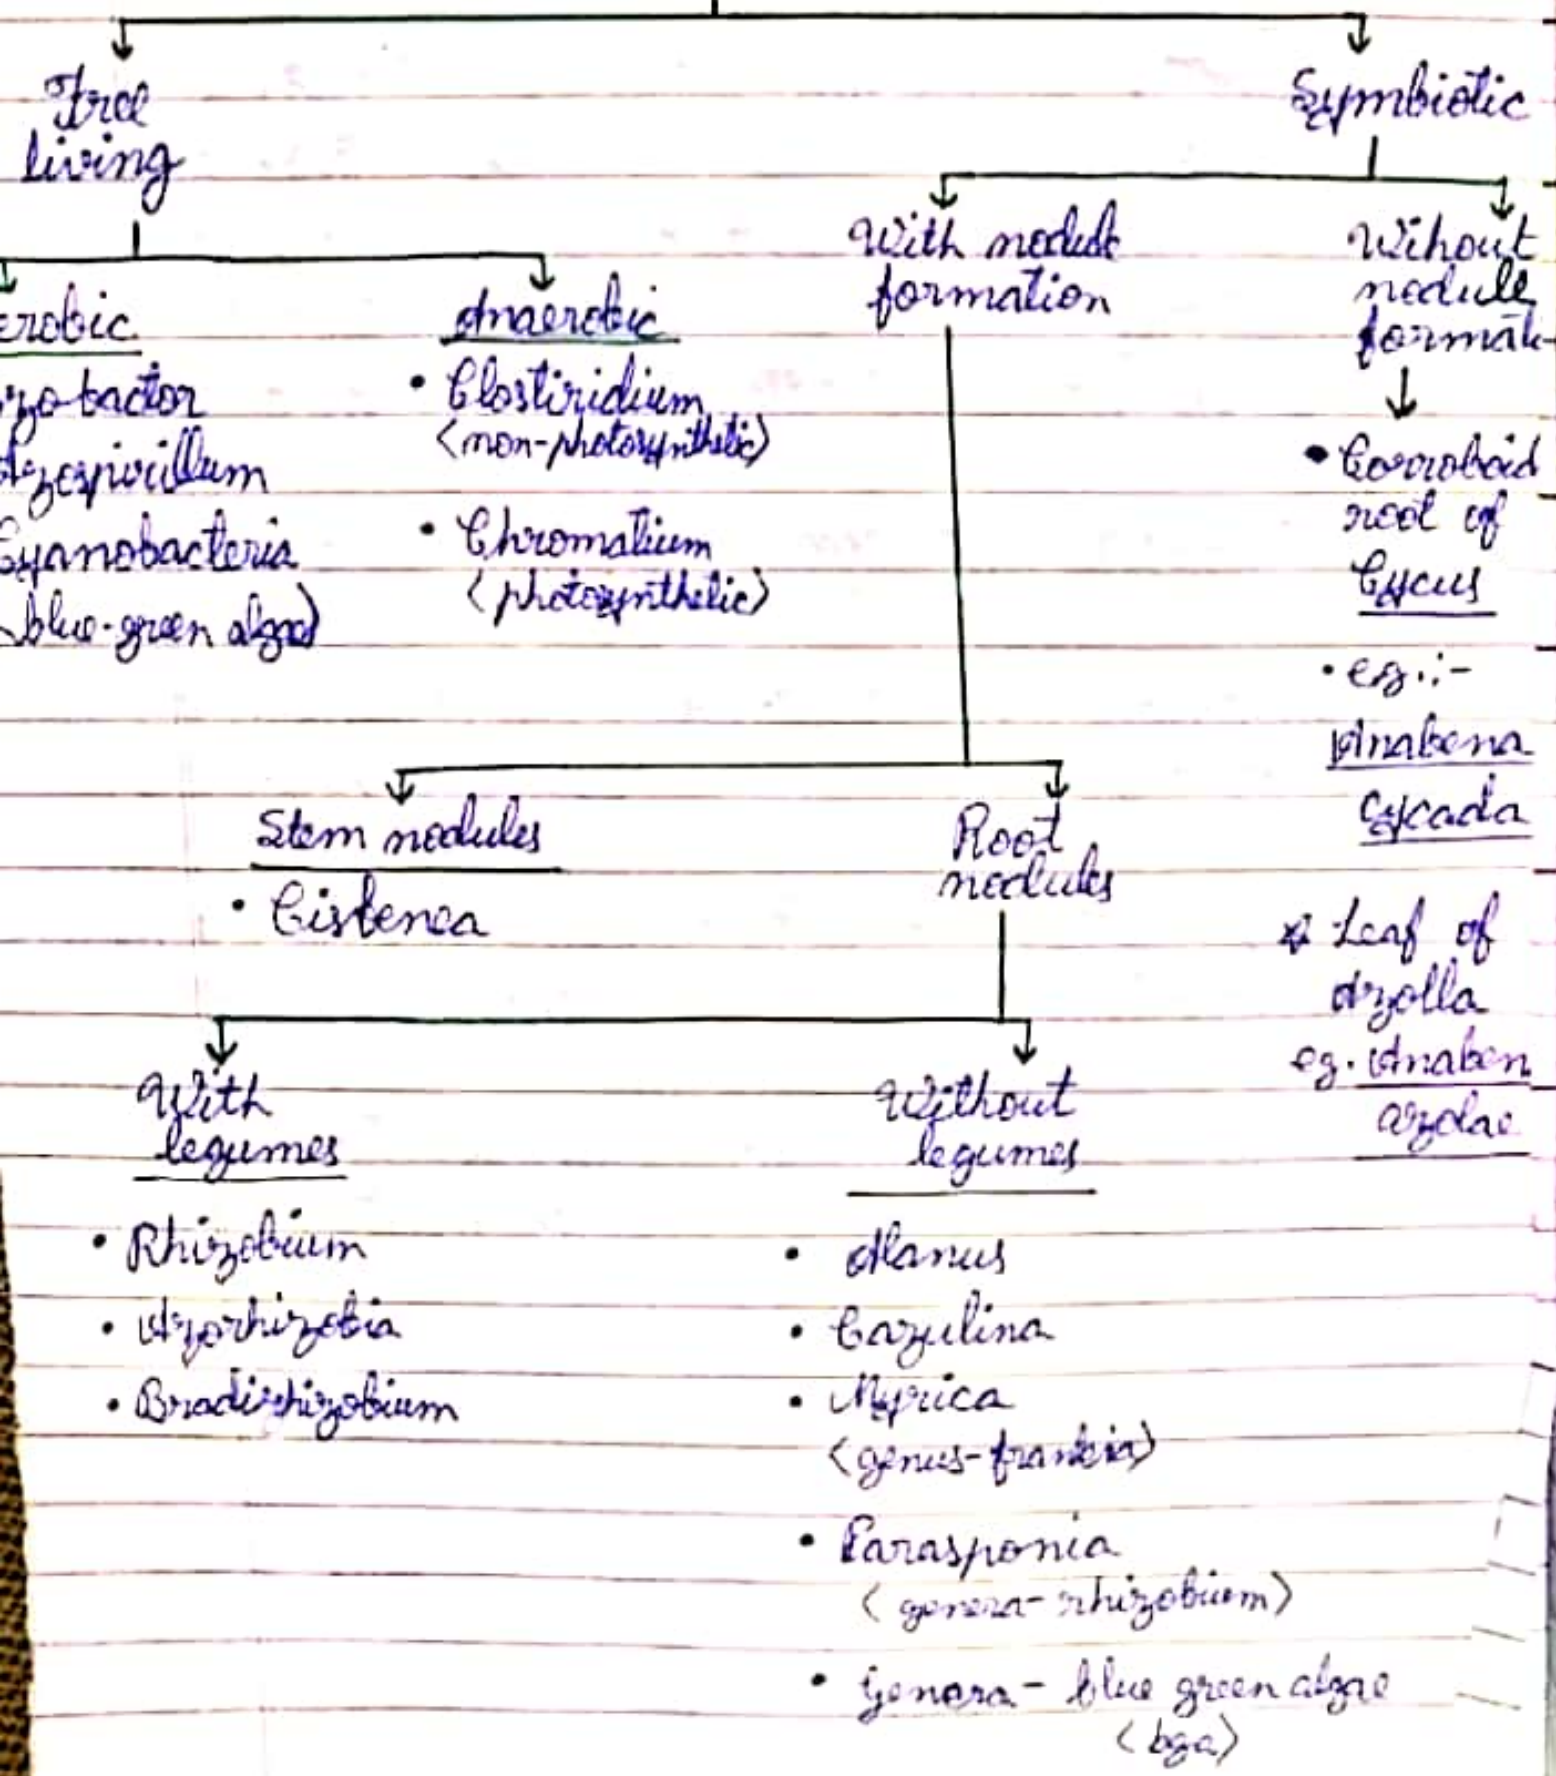 Free
living
Symbiotic
With nodule
formation
Wihout
nodule
formati-
erobic
zo bactor
Azospirillum
Cyanobacteria
(blue-green algae)
Anaerobic
• Clostiridium
<non-photosynthetic>
• Chromatium
<photosynthetic>
• Corroloid
root of
Cycus
• eg.:-
Anabena
cycada
☆ Leaf of
Azolla
eg. Anaben
azolae
Stem nodules
• Cisbenea
Root
nodules
With
legumes
• Rhizobium
• Azorhizobia
• Bradirhizobium
Without
legumes
• Alanus
• Cazulina
• Myrica
<genus-frankia>
• Parasponia
<genera-rhizobium>
• Genera- blue green algae
<bga>